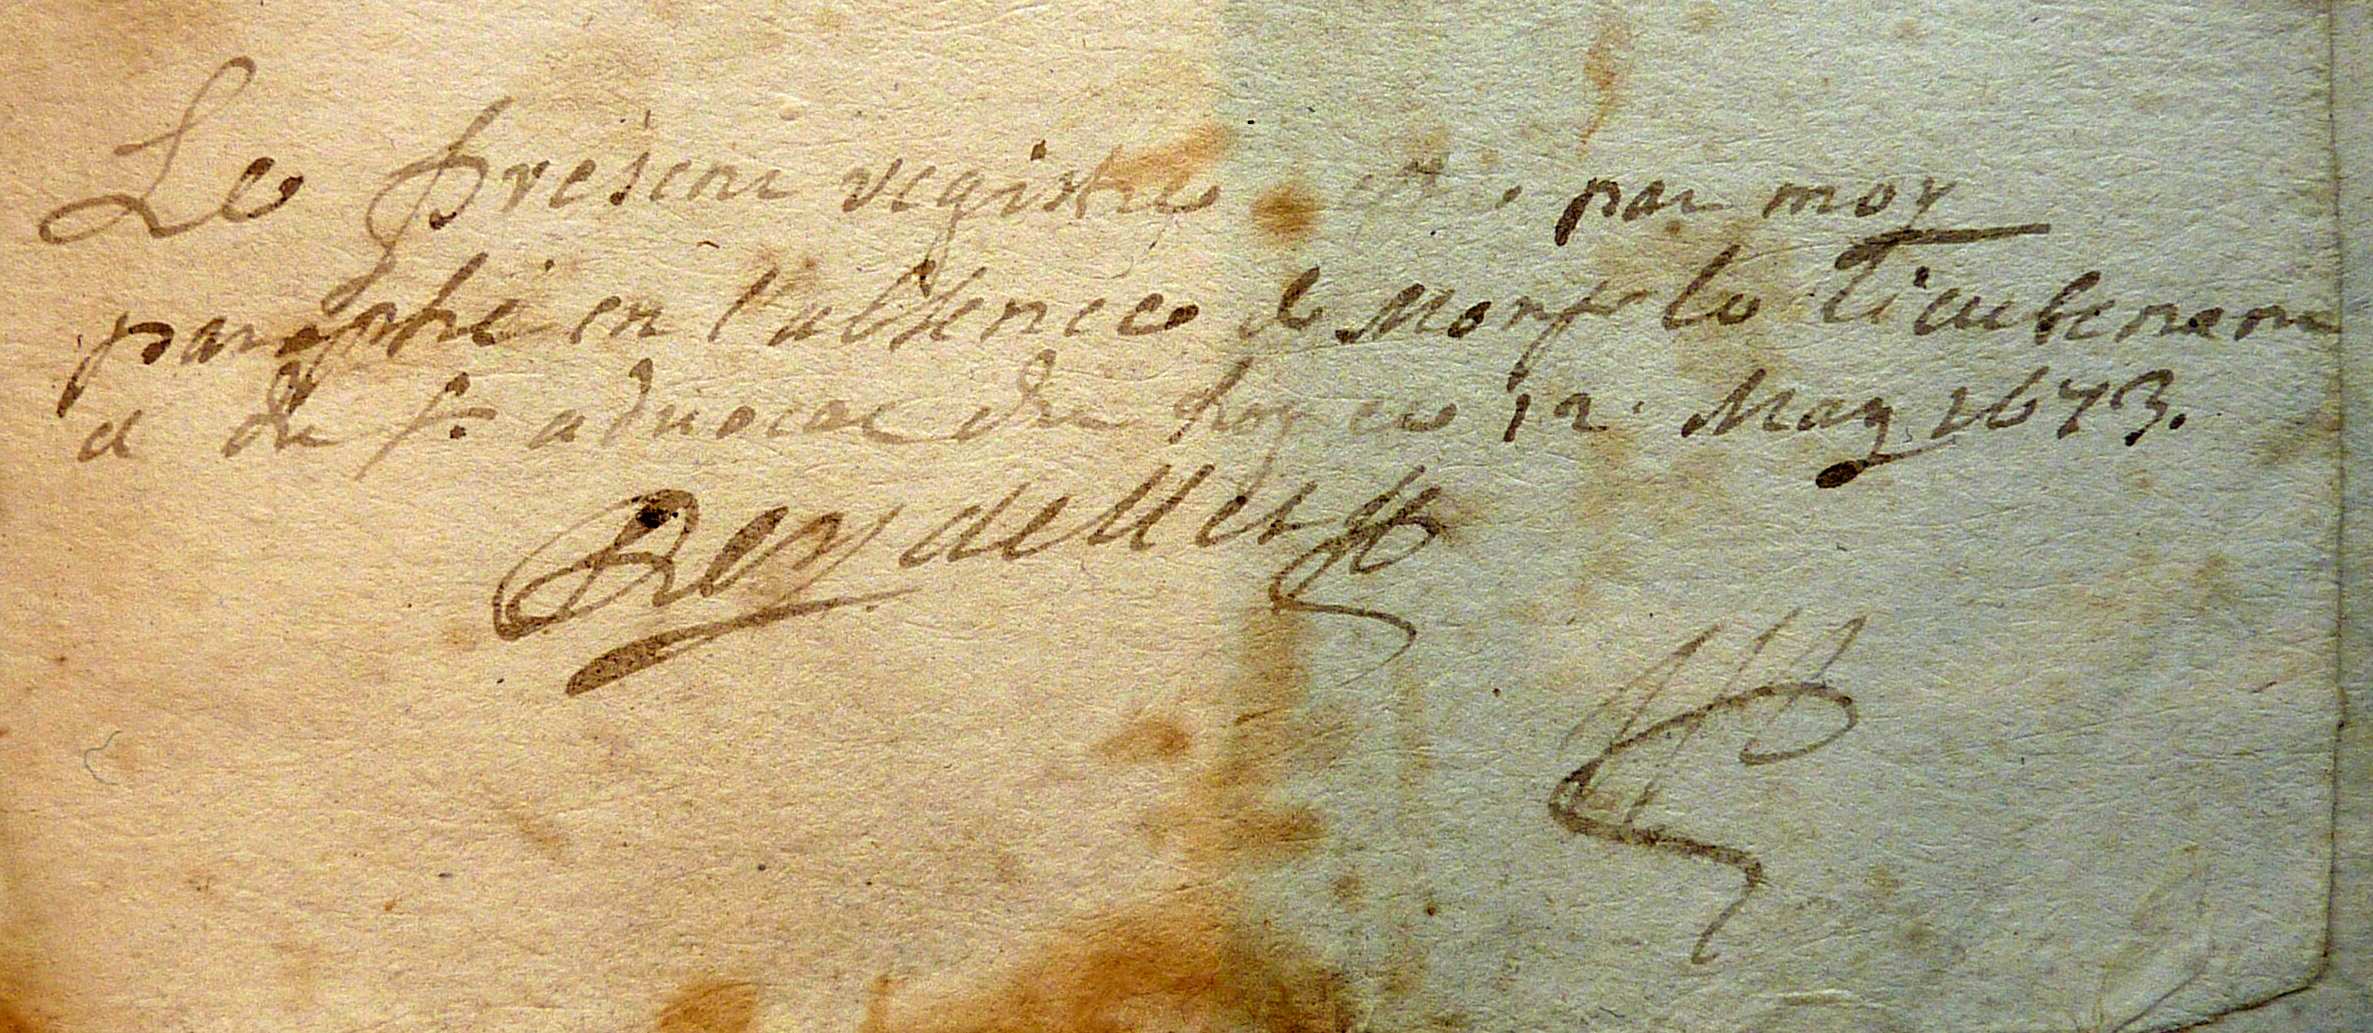 Le present registre par moy
paraphé en l'absence de Monsr le Lieutenant
et du Sr advocat du Roy ce 12 May 1673.
Reydellet